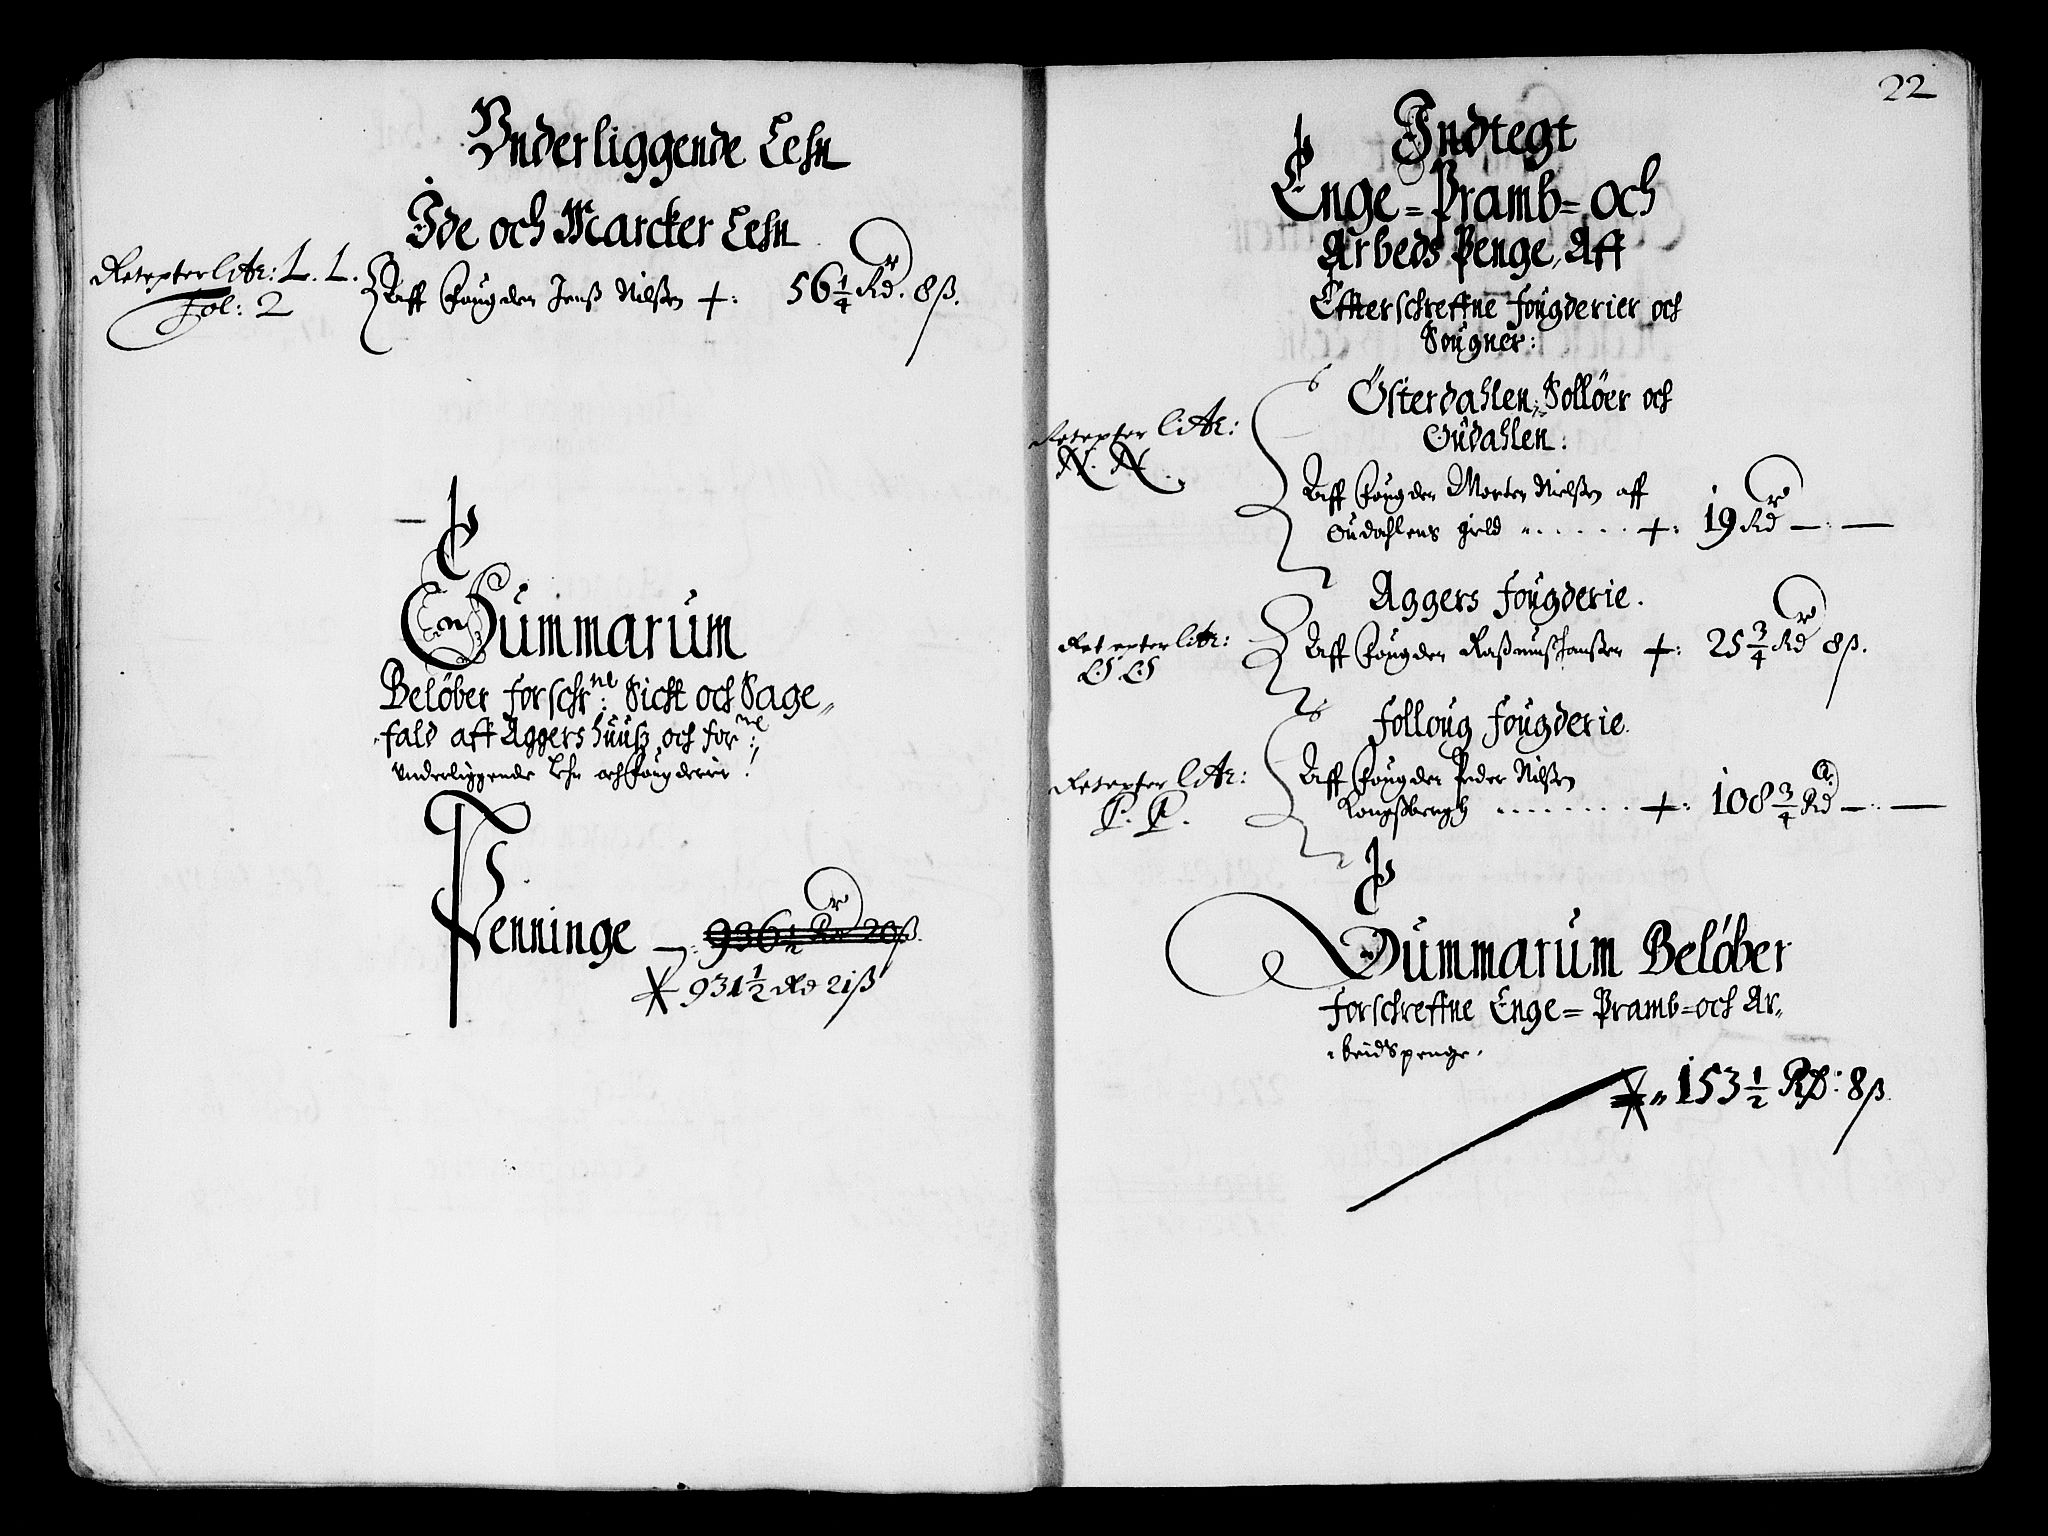 Vnderliggende Lehn
Ide och Marcker Lehn
Recepter litr: L. L.
Fol: 2
Aff Fougden Jenß Nilßen +: 56 1/4 Rdr. 8ß.
Summarum
Beløber forschr:ne Sicht och Sage„
„fald aff Aggershuuß och for:ne
Vnderliggende Lehn och Fougderier.
Penninge —: 936 1/2 Rdr 20ß.
931 1/2 Rd 21ß
22
Indtegt
Enge= Pramb= och
Arbeds Penge, Aff
Effterschreffne Fougderier och
Sougner:
Østerdahlen, Solløer och
Oudahlen:
Recepter litr:
N. N.
Aff Fougden Morten Nielßen aff
Oudahlens gield +: 19 Rdr —:—
Aggers Fougderie.
Recepter litr:
O O
Aff Fougden Raßmuß Hanßen +: 25 3/4 Rdr 8ß.
Folloug Fougderie.
Recepter litr:
P. P.
Aff Fougden Peder Nilßen
Kongßbergh +: 108 3/4 Rdr —:—
Summarum Beløber
forschreffne Enge= Pramb= och Ar„
„beidspenge.
153 1/2 RD: 8ß.